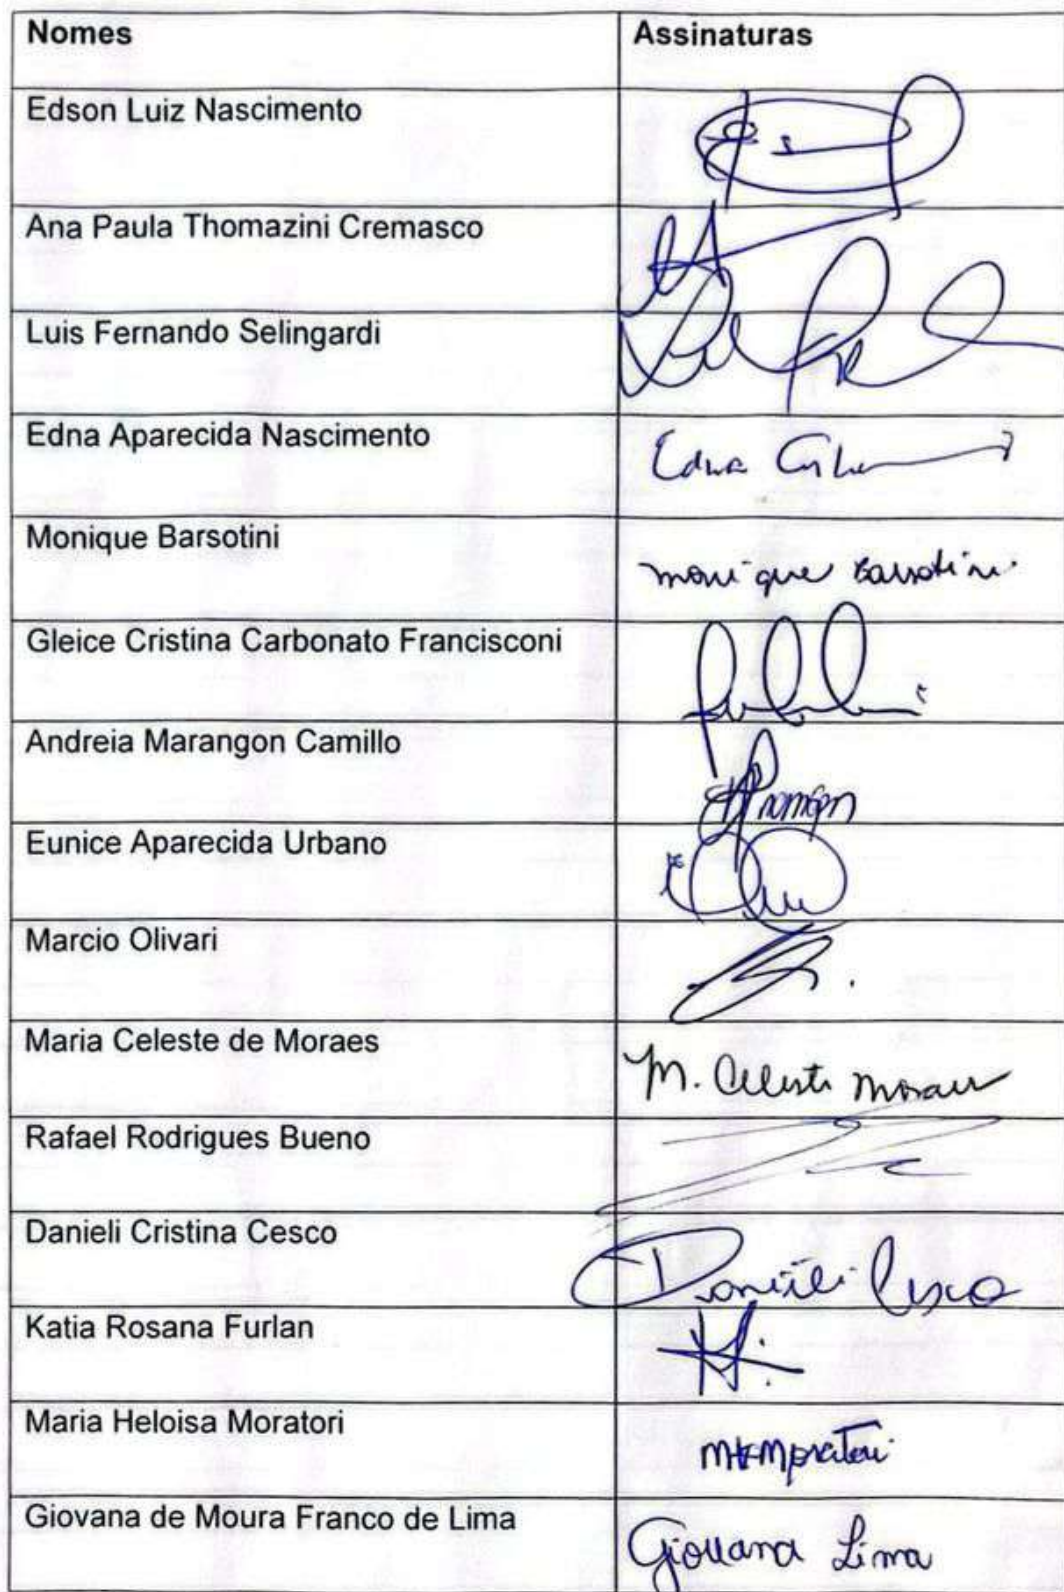 Nomes Assinaturas
Edson Luiz Nascimento
Ana Paula Thomazini Cremasco
Luis Fernando Selingardi
Edna Aparecida Nascimento Edna
Monique Barsotini monique Barsotini
Gleice Cristina Carbonato Francisconi
Andreia Marangon Camillo
Eunice Aparecida Urbano
Marcio Olivari
Maria Celeste de Moraes M. Celeste Moraes
Rafael Rodrigues Bueno
Danieli Cristina Cesco Danieli Cesco
Katia Rosana Furlan
Maria Heloisa Moratori MHMoratori
Giovana de Moura Franco de Lima Giovana Lima